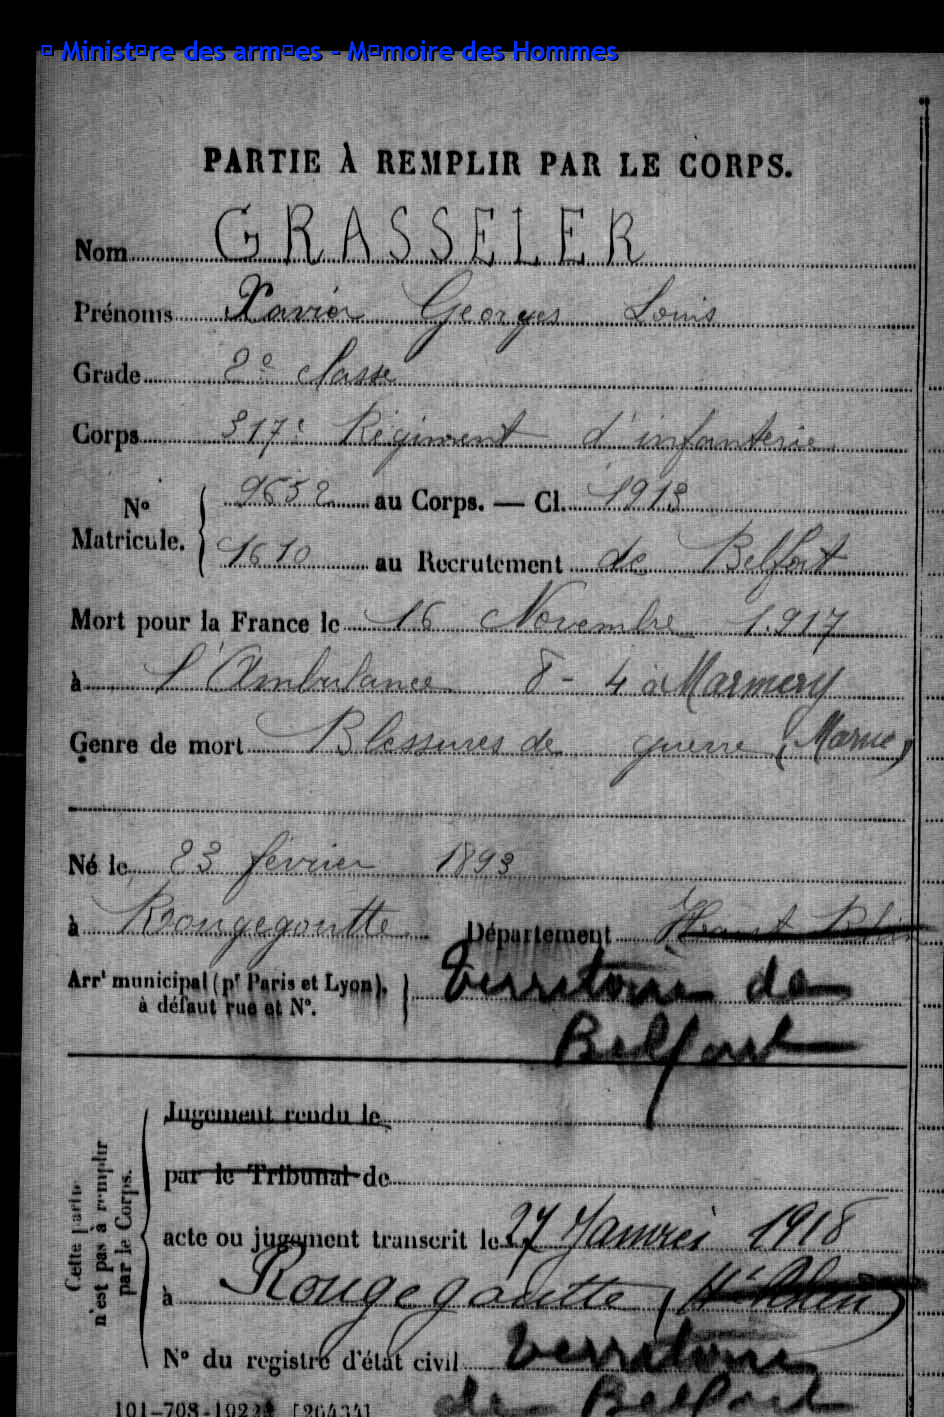 © Ministère des armées - Mémoire des Hommes
PARTIE À REMPLIR PAR LE CORPS.
Nom GRASSELER
Prénoms Xavier Georges Louis
Grade 2e classe
Corps 317e Régiment d'infanterie
No Matricule. 9652 au Corps. — Cl. 1913
1610 au Recrutement de Belfort
Mort pour la France le 16 Novembre 1.917
à l'Ambulance 8 - 4 à Marmery
Genre de mort Blessures de guerre (Marne)
Né le 23 février 1893
à Rougegoutte Département Haut Rhin
Arrt municipal (pr Paris et Lyon),
à défaut rue et No.
Territoire de
Belfort
Jugement rendu le
par le Tribunal de
acte ou jugement transcrit le 27 Janvier 1918
à Rougegoutte (Ht Rhin)
No du registre d'état civil Territoire
de Belfort
Cette partie
n'est pas à remplir
par le Corps.
101-708-1922. [26434]